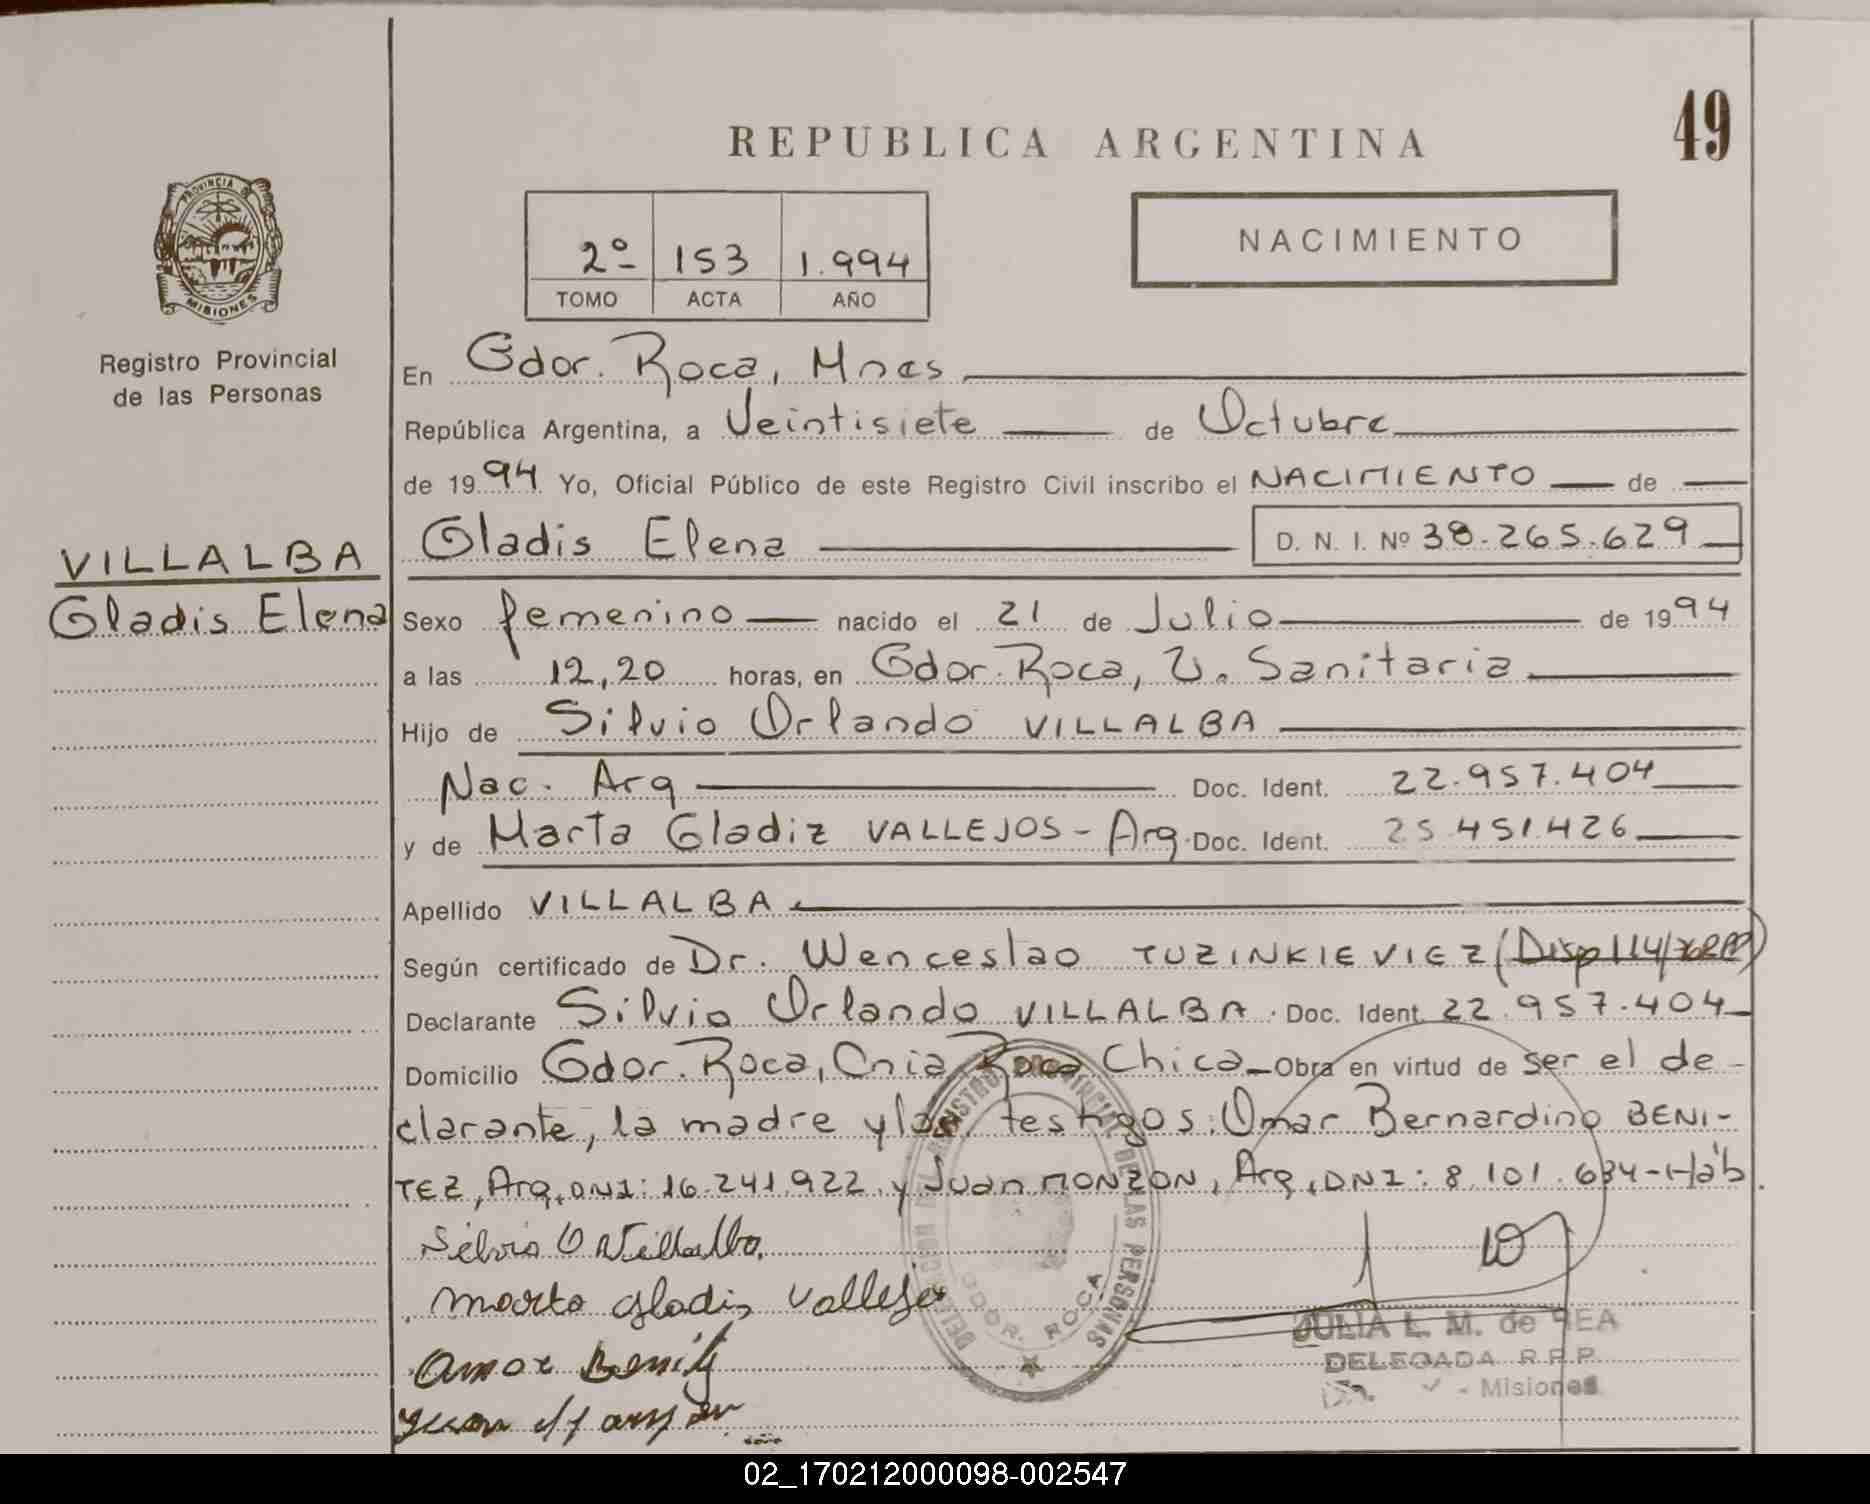 49
REPUBLICA ARGENTINA
PROVINCIA DE
MISIONES
Registro Provincial
de las Personas
2º 153 1.994
TOMO ACTA AÑO
NACIMIENTO
En Gdor. Roca, Mnes
República Argentina, a Veintisiete de Octubre
de 1994 Yo, Oficial Público de este Registro Civil inscribo el NACIMIENTO de
VILLALBA
Gladis Elena
Gladis Elena D. N. I. Nº 38.265.629
Sexo femenino nacido el 21 de Julio de 1994
a las 12,20 horas, en Gdor. Roca, U. Sanitaria
Hijo de Silvio Orlando VILLALBA
Nac. Arg Doc. Ident. 22.957.404
y de Marta Gladiz VALLEJOS - Arg. Doc. Ident. 25.451.426
Apellido VILLALBA
Según certificado de Dr. Wenceslao TUZINKIEVIEZ (Disp 114/
Declarante Silvio Orlando VILLALBA. Doc. Ident. 22.957.404
Domicilio Gdor. Roca, Cnia Roca Chica - Obra en virtud de ser el de-
clarante, la madre y los testigos: Omar Bernardino BENI-
TEZ, Arg, DNI: 16.241.922 y Juan MONZON, Arg, DNI: 8.101.634 - Háb.
Silvio O Villalba.
Marta Gladis Vallejo
Omar Benit
Juan
REGISTRO PROVINCIAL DE LAS PERSONAS
GDOR. ROCA
JULIA L. M. de REA
DELEGADA R.P.P.
- Misiones
02_170212000098-002547